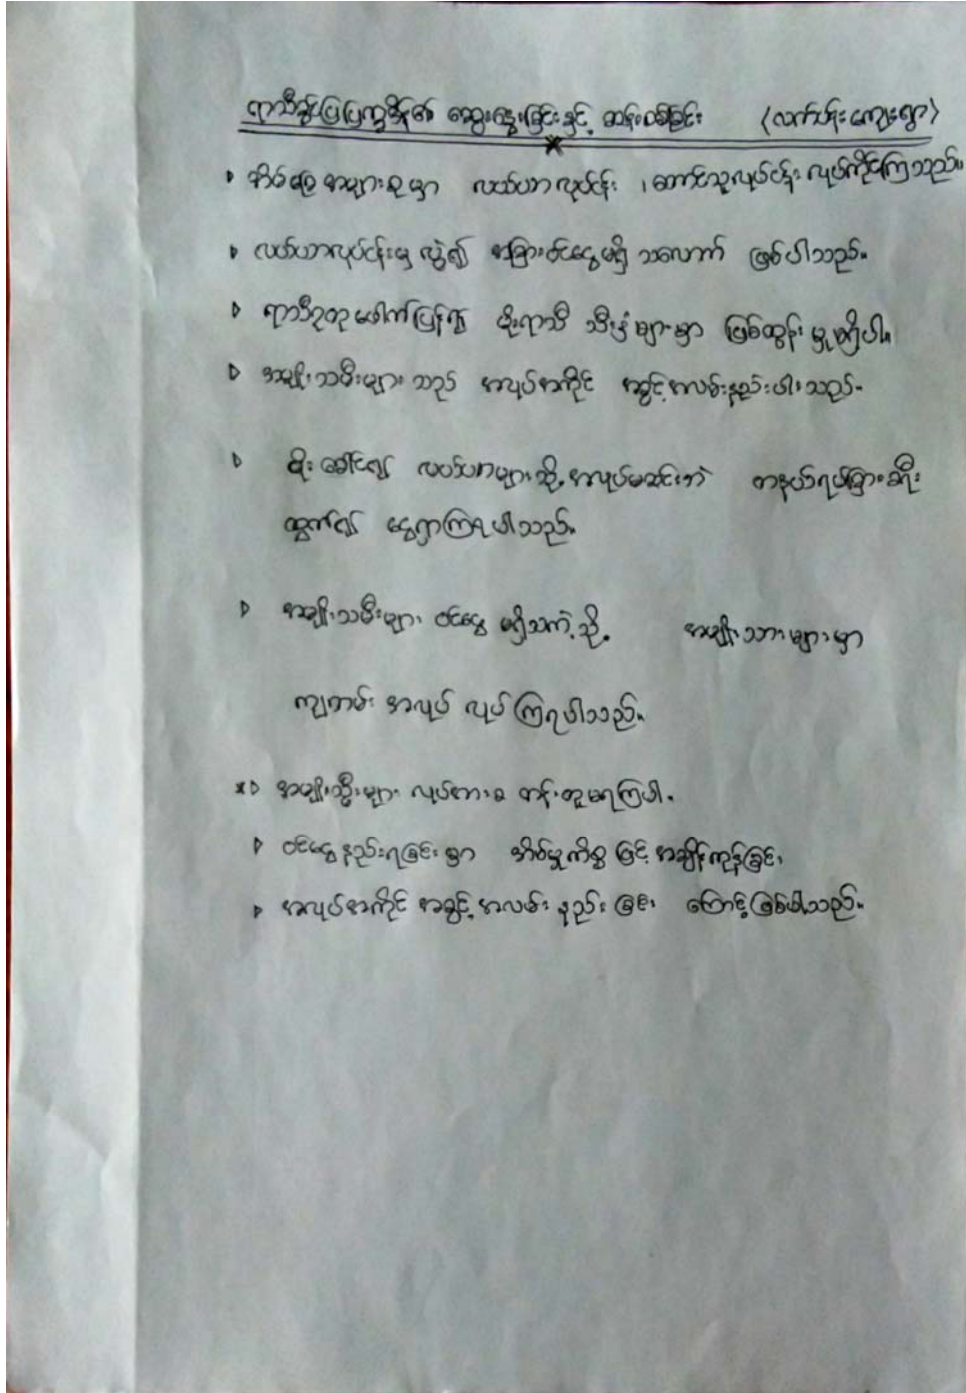 ရာသီခွင်ပြပြက္ခဒိန်၏ ဆွေးနွေးခြင်းနှင့် ဆန်းစစ်ခြင်း (လက်ပန်းကျေးရွာ)
အိမ်ခြေ အများစုမှာ လယ်ယာလုပ်ငန်း ၊ တောင်သူလုပ်ငန်း လုပ်ကိုင်ကြသည်။
လယ်ယာလုပ်ငန်းမှ လွဲ၍ အခြားဝင်ငွေမရှိ သလောက် ဖြစ်ပါသည်။
ရာသီဥတု ဖောက်ပြန်၍ မိုးရာသီ သီးနှံများမှာ ဖြစ်ထွန်းမှု မရှိပါ။
အမျိုးသမီးများ သည် အလုပ်အကိုင် အခွင့်အလမ်းနည်းပါးသည်။
မိုးခေါင်၍ လယ်ယာများသို့ အလုပ်မဆင်းဘဲ တနယ်ရပ်ခြားခရီး
ထွက်၍ ငွေရှာကြရပါသည်။
အမျိုးသမီးများ ဝင်ငွေ မရှိသကဲ့သို့ အမျိုးသားများမှာ
ကျဘမ်း အလုပ် လုပ်ကြရပါသည်။
အမျိုးသ္မီးများ လုပ်အားခ တန်းတူမရကြပါ။
ဝင်ငွေနည်းရခြင်းမှာ အိမ်မှုကိစ္စ ဖြင့် အချိန်ကုန်ခြင်း
အလုပ်အကိုင် အခွင့်အလမ်း နည်းခြင်း ကြောင့်ဖြစ်ပါသည်။